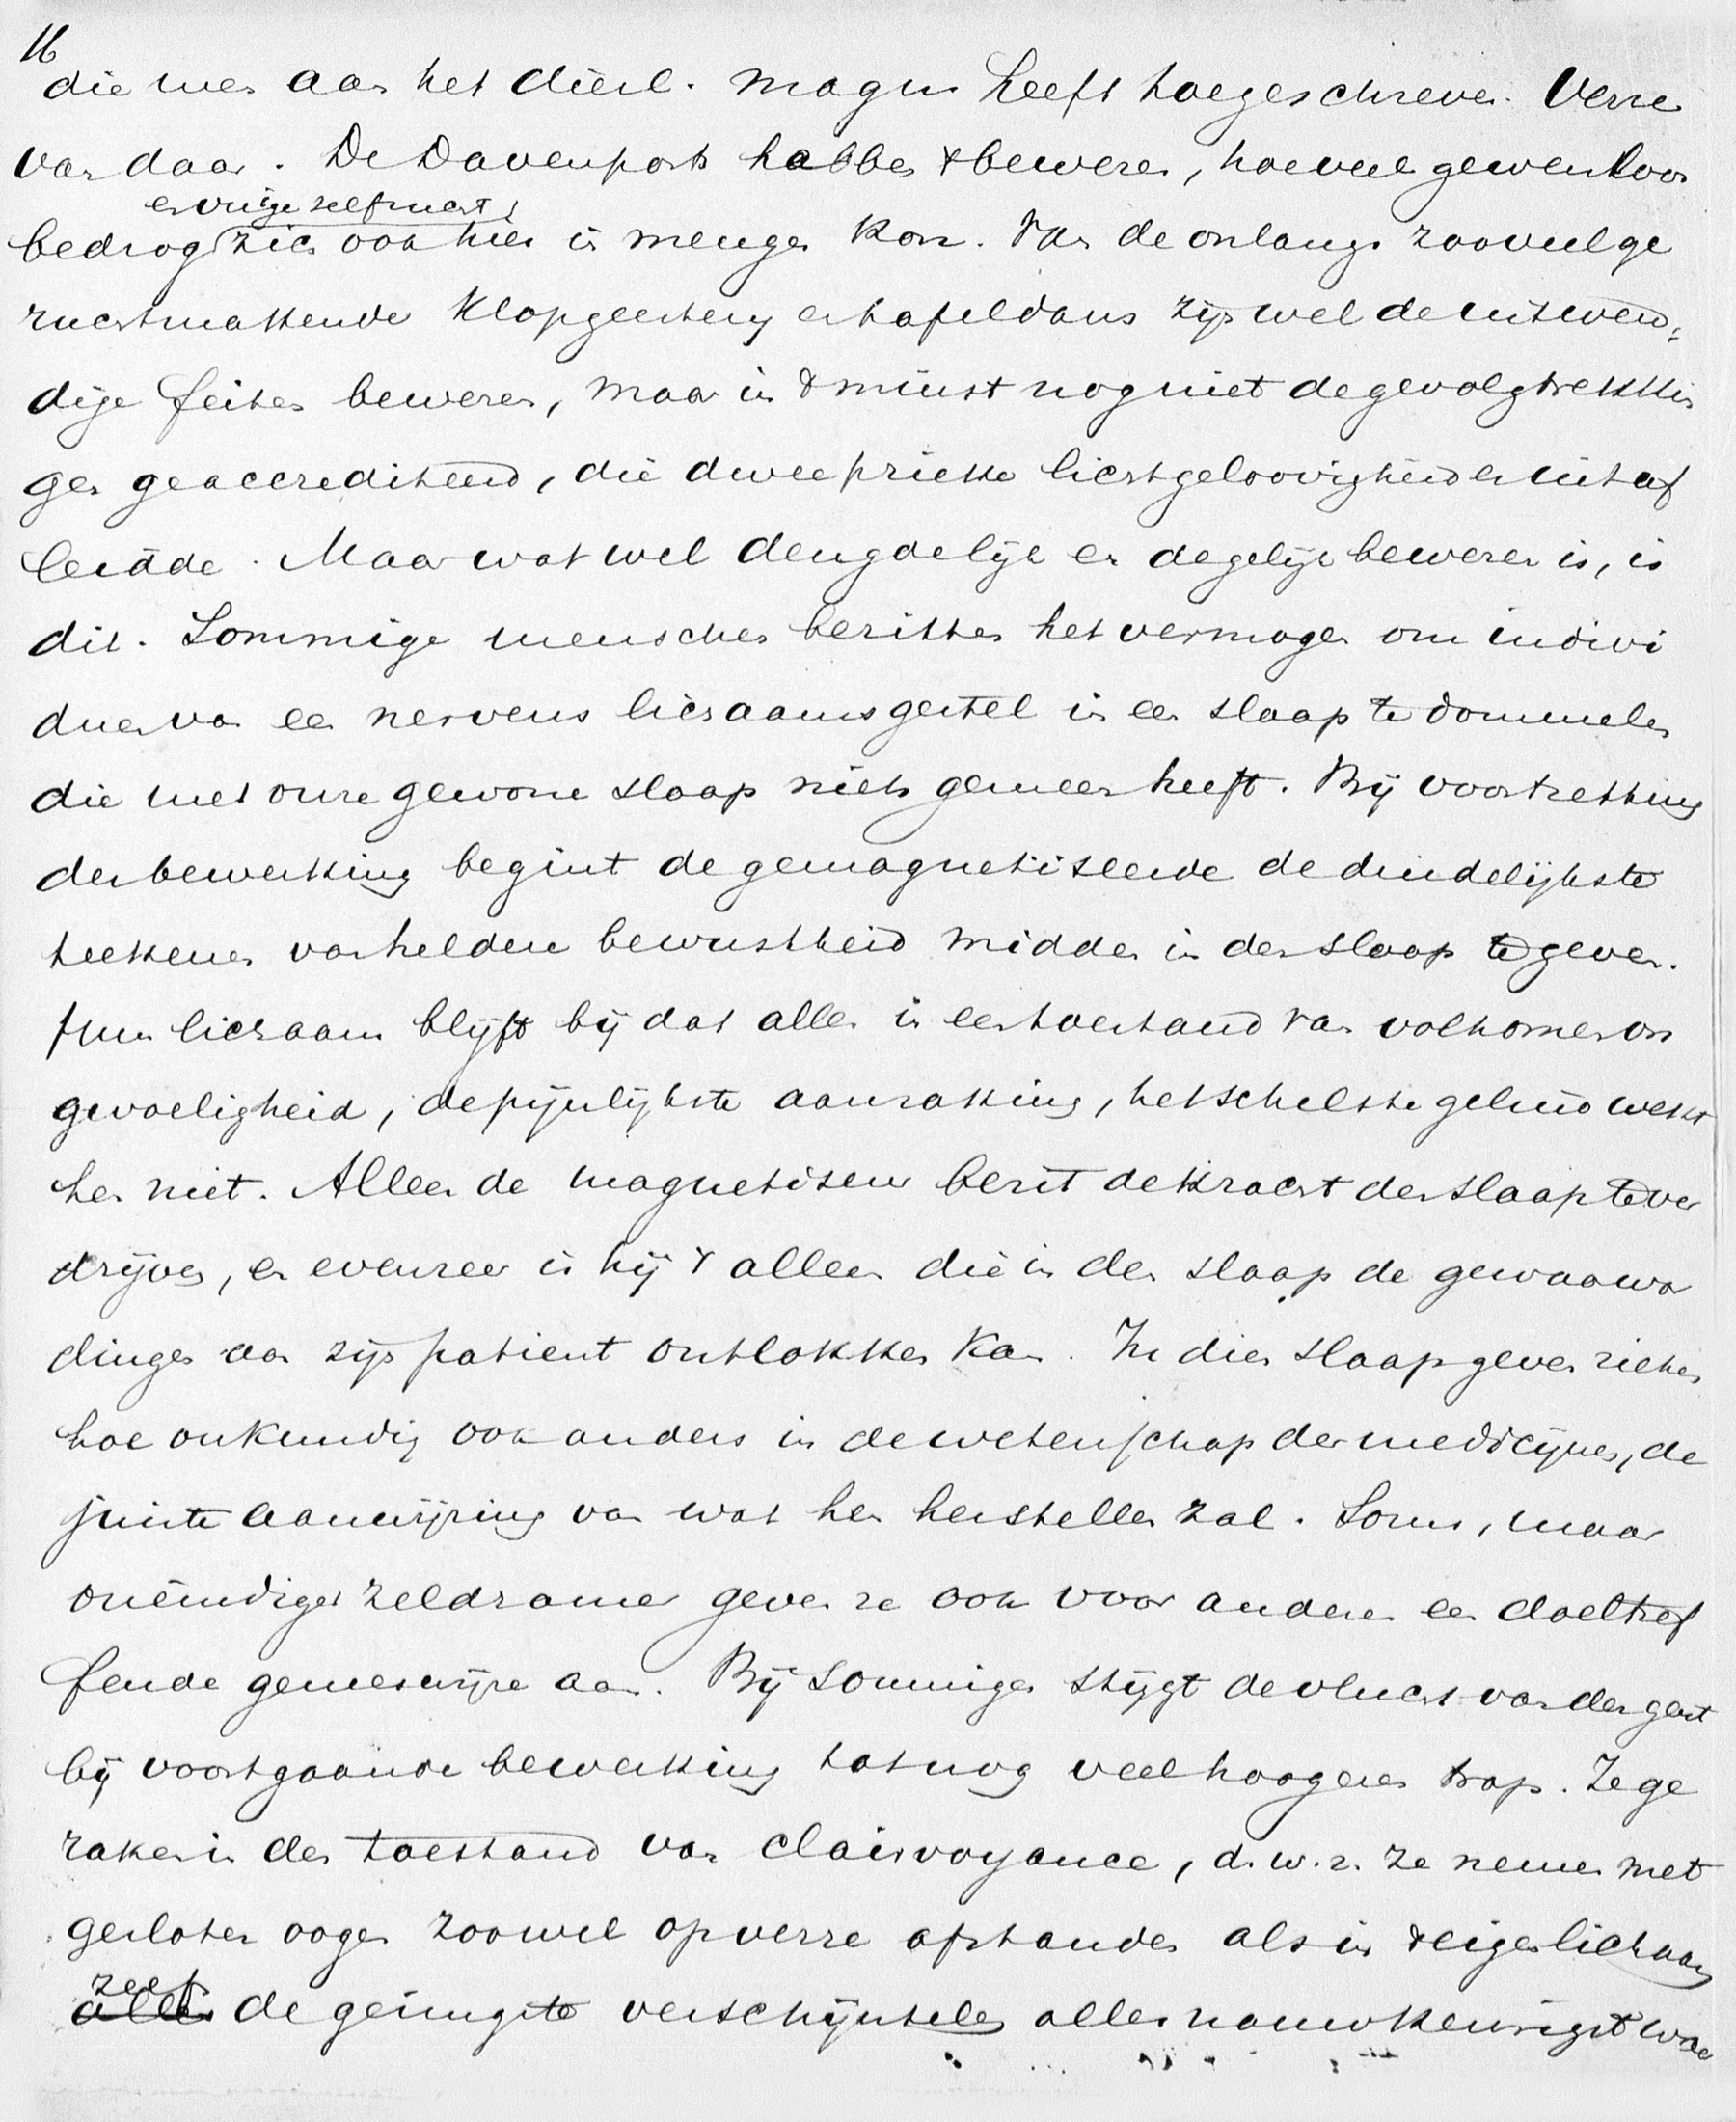 16
die men aan het dierl. magn. heeft toegeschreven. Verre
van daar. De Davenports hebben 't bewezen, hoeveel gewetenloos
en vuige zelfzucht
bedrog zich ook hier in mengen kon. Van de onlangs zooveel ge
ruchtmakende klopgeesterij en tafeldans zijn wel de uitwen-
dige feiten bewezen, maar in 't minst nog niet de gevolgtrekkin
gen geaccrediteerd, die dweepzieke lichtgeloovigheid er uit af
leidde. Maar wat wel deugdelijk en degelijk bewezen is, is
dit. Sommige menschen bezitten het vermogen om indivi
duen van een nerveus lichaamsgestel in een slaap te dommelen
die met onze gewone slaap niets gemeen heeft. Bij voortzetting
der bewerking begint de gemagnetiseerde de duidelijkste
teekenen van heldere bewustheid midden in den slaap te geven.
Hun lichaam blijft bij dat alles in een toestand van volkomen on
gevoeligheid, de pijnlijkste aanraking, het schelste geluid wekt
hen niet. Alleen de magnetiseur bezit de kracht den slaap te ver
drijven, en evenzeer is hij 't alleen die in den slaap de gewaarwor
dingen aan zijn patient ontlokken kan. In dien slaap geven zieken
hoe onkundig ook anders in de wetenschap der medicijnen, de
juiste aanwijzing van wat hen herstellen zal. Soms, maar
oneindiger zeldzamer geven ze ook voor anderen een doeltref
fende geneeswijze aan. Bij sommigen stijgt de vlucht van den geest
bij voortgaande bewerking tot nog veel hoogeren trap. Ze ge
raken in den toestand van clairvoyance, d.w.z. ze nemen met
gesloten oogen zoowel op verre afstanden als in 't eigen lichaam
zelf
alle de geringste verschijnselen aller nauwkeurigst waar